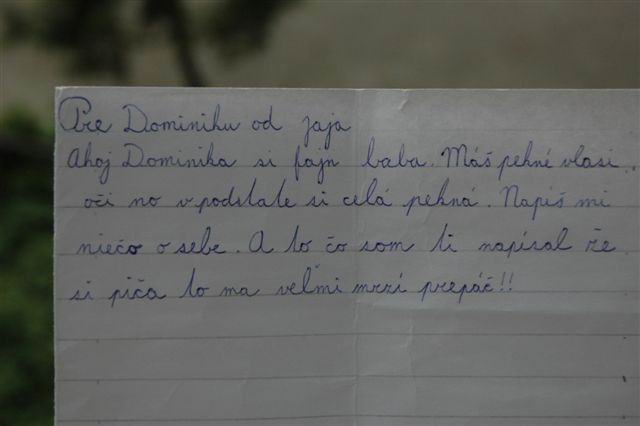 Pre Dominiku od jaja
Ahoj Dominika si fajn baba. Máš pekné vlasi
oči no v podstate si celá pekná. Napíš mi
niečo o sebe. A to čo som ti napísal že
si piča to ma veľmi mrzí prepáč!!